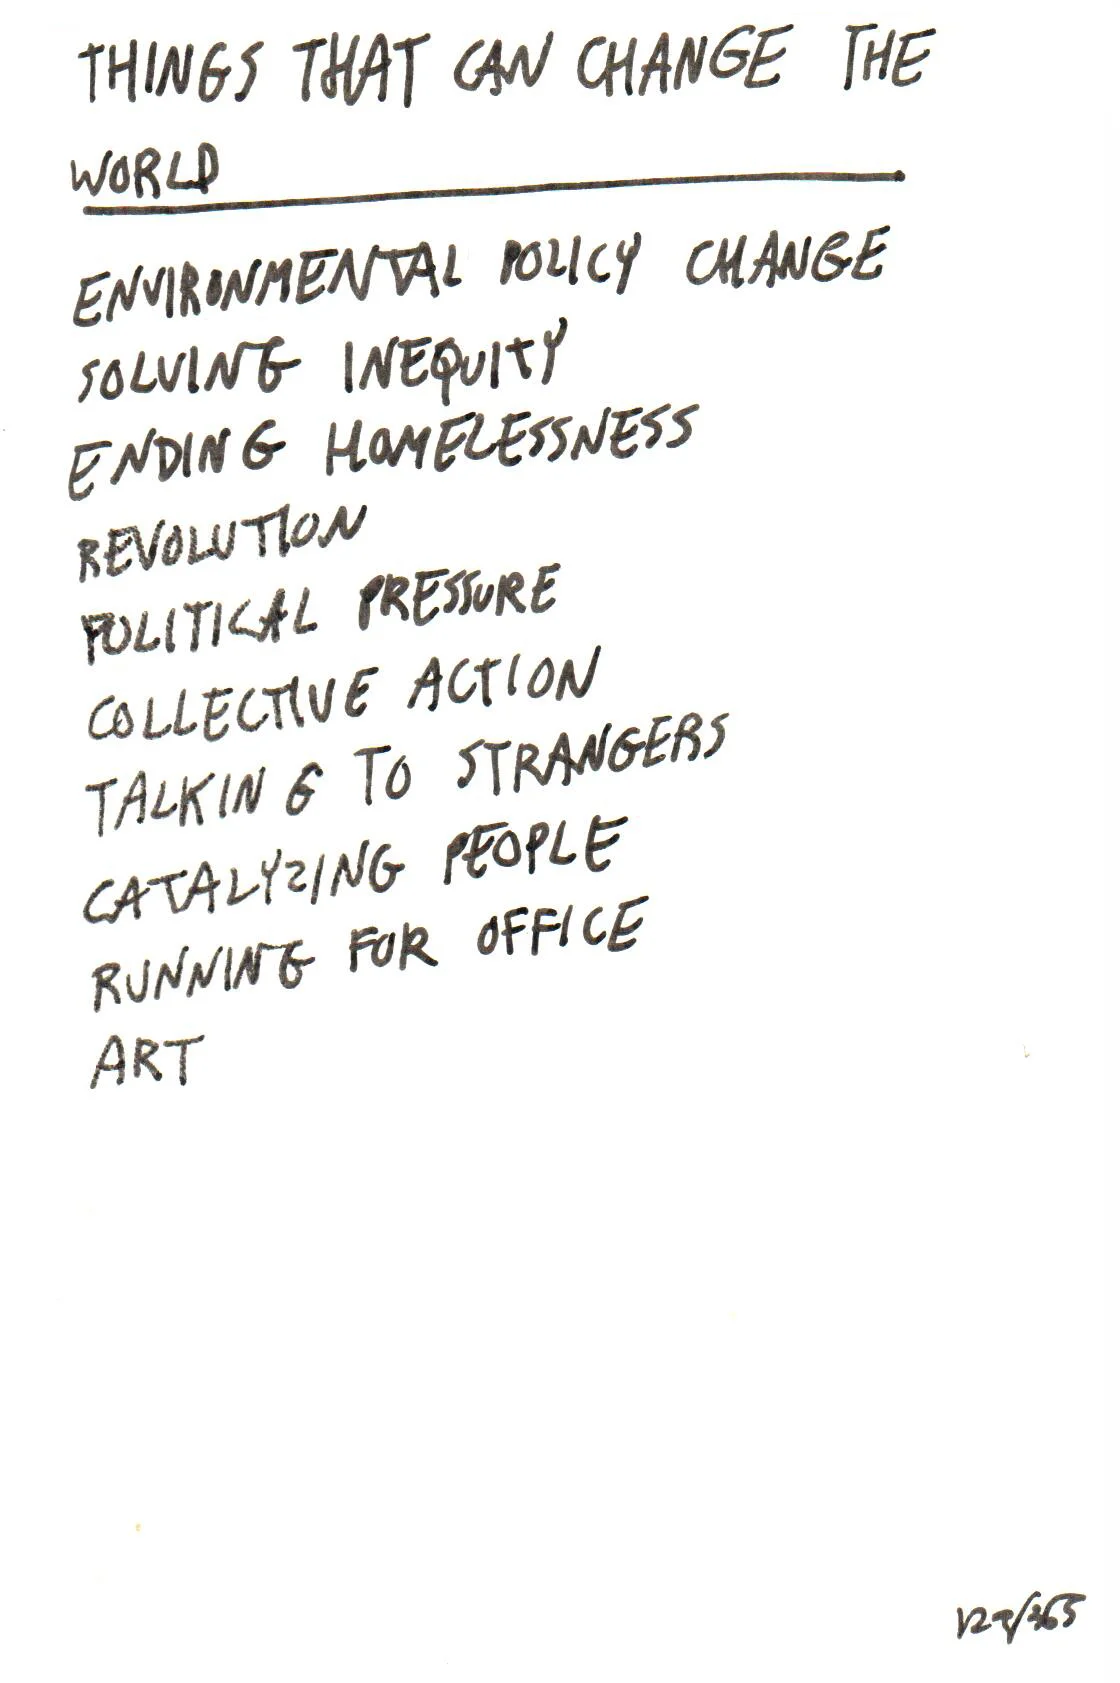 THINGS THAT CAN CHANGE THE
WORLD
ENVIRONMENTAL POLICY CHANGE
SOLVING INEQUITY
ENDING HOMELESSNESS
REVOLUTION
POLITICAL PRESSURE
COLLECTIVE ACTION
TALKING TO STRANGERS
CATALYZING PEOPLE
RUNNING FOR OFFICE
ART